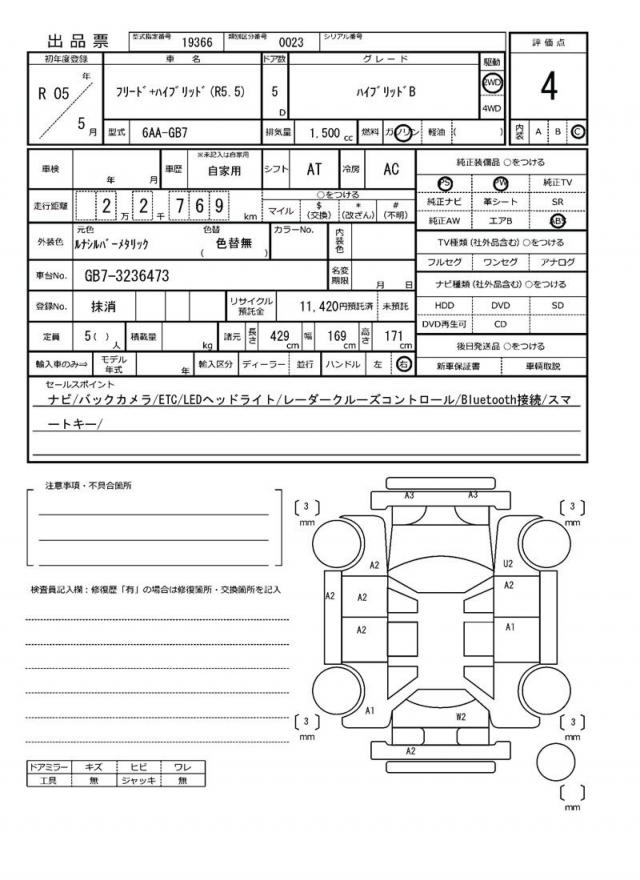 出品票 型式指定番号 19366 類別区分番号 0023 シリアル番号
初年度登録 車名 ドア数 グレード 駆動 評価点
R 05 年 5 月 フリード+ハイブリッド(R5.5) 5 D ハイブリッドB 2WD 4WD 4
型式 6AA-GB7 排気量 1.500 cc 燃料 ガソリン 軽油 ( ) 内装 A B C
車検 年 月 車歴 ※未記入は自家用 自家用 シフト AT 冷房 AC 純正装備品 ○をつける
PS PW 純正TV
走行距離 2 万 2 千 7 6 9 km ○をつける マイル $ (交換) * (改ざん) # (不明)
純正ナビ 革シート SR
純正AW エアB ABS
外装色 元色 ルナシルバーメタリック 色替 ( 色替無 ) カラーNo. 内装色
TV種類 (社外品含む) ○をつける
フルセグ ワンセグ アナログ
車台No. GB7-3236473 名変期限 月 日
ナビ種類 (社外品含む) ○をつける
登録No. 抹消 リサイクル預託金 11,420円預託済 未預託
HDD DVD SD
DVD再生可 CD
定員 5( )人 積載量 kg 諸元 長さ 429 cm 幅 169 cm 高さ 171 cm
後日発送品 ○をつける
輸入車のみ⇒ モデル年式 年 輸入区分 ディーラー 並行 ハンドル 左 右 新車保証書 車輌取説
セールスポイント
ナビ/バックカメラ/ETC/LEDヘッドライト/レーダークルーズコントロール/Bluetooth接続/スマ
ートキー/
注意事項・不具合箇所
A3 A3
3 mm 3 mm
A2 U2
検査員記入欄：修復歴「有」の場合は修復箇所・交換箇所を記入
A2 A2 A2
A2 A1
A1 W2
3 mm 3 mm
A2
ドアミラー キズ ヒビ ワレ
工具 無 ジャッキ 無
mm